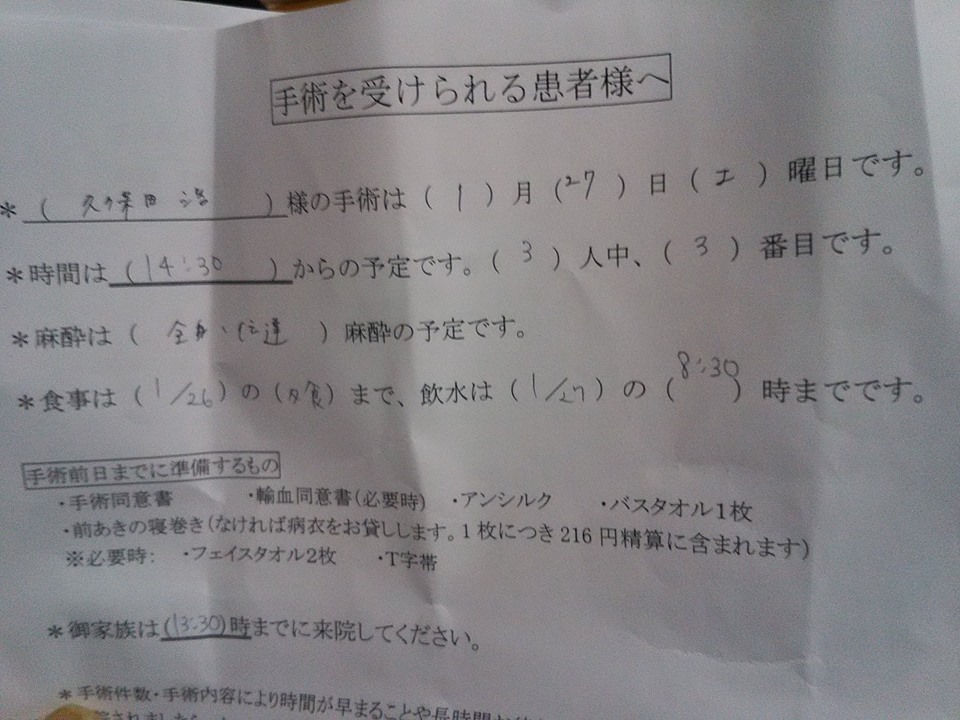 手術を受けられる患者様へ
*( 久保田 )様の手術は( 1 )月( 27 )日( 土 )曜日です。
*時間は( 14:30 )からの予定です。( 3 )人中、( 3 )番目です。
*麻酔は( 全身・伝達 )麻酔の予定です。
*食事は( 1/26 )の( 夕食 )まで、飲水は( 1/27 )の( 8:30 )時までです。
手術前日までに準備するもの
・手術同意書 ・輸血同意書(必要時) ・アンシルク ・バスタオル1枚
・前あきの寝巻き(なければ病衣をお貸しします。1枚につき216円精算に含まれます)
※必要時: ・フェイスタオル2枚 ・T字帯
*御家族は(13:30)時までに来院してください。
*手術件数・手術内容により時間が早まることや長時間お